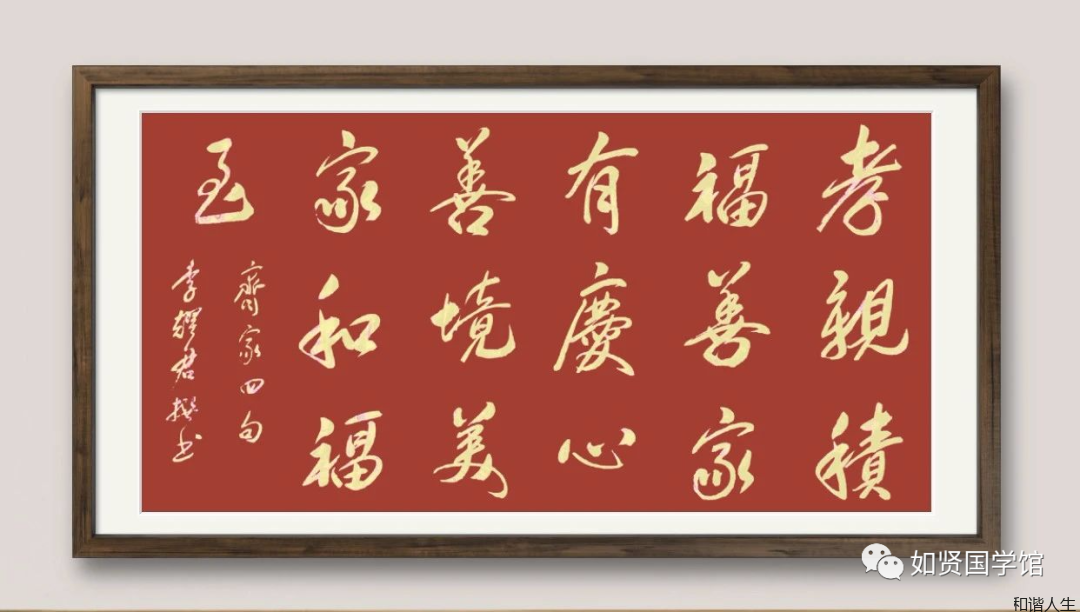 孝親積
福善家
有慶心
善境美
家和福
至
齊家四句
李耀君撰书
如贤国学馆
和谐人生